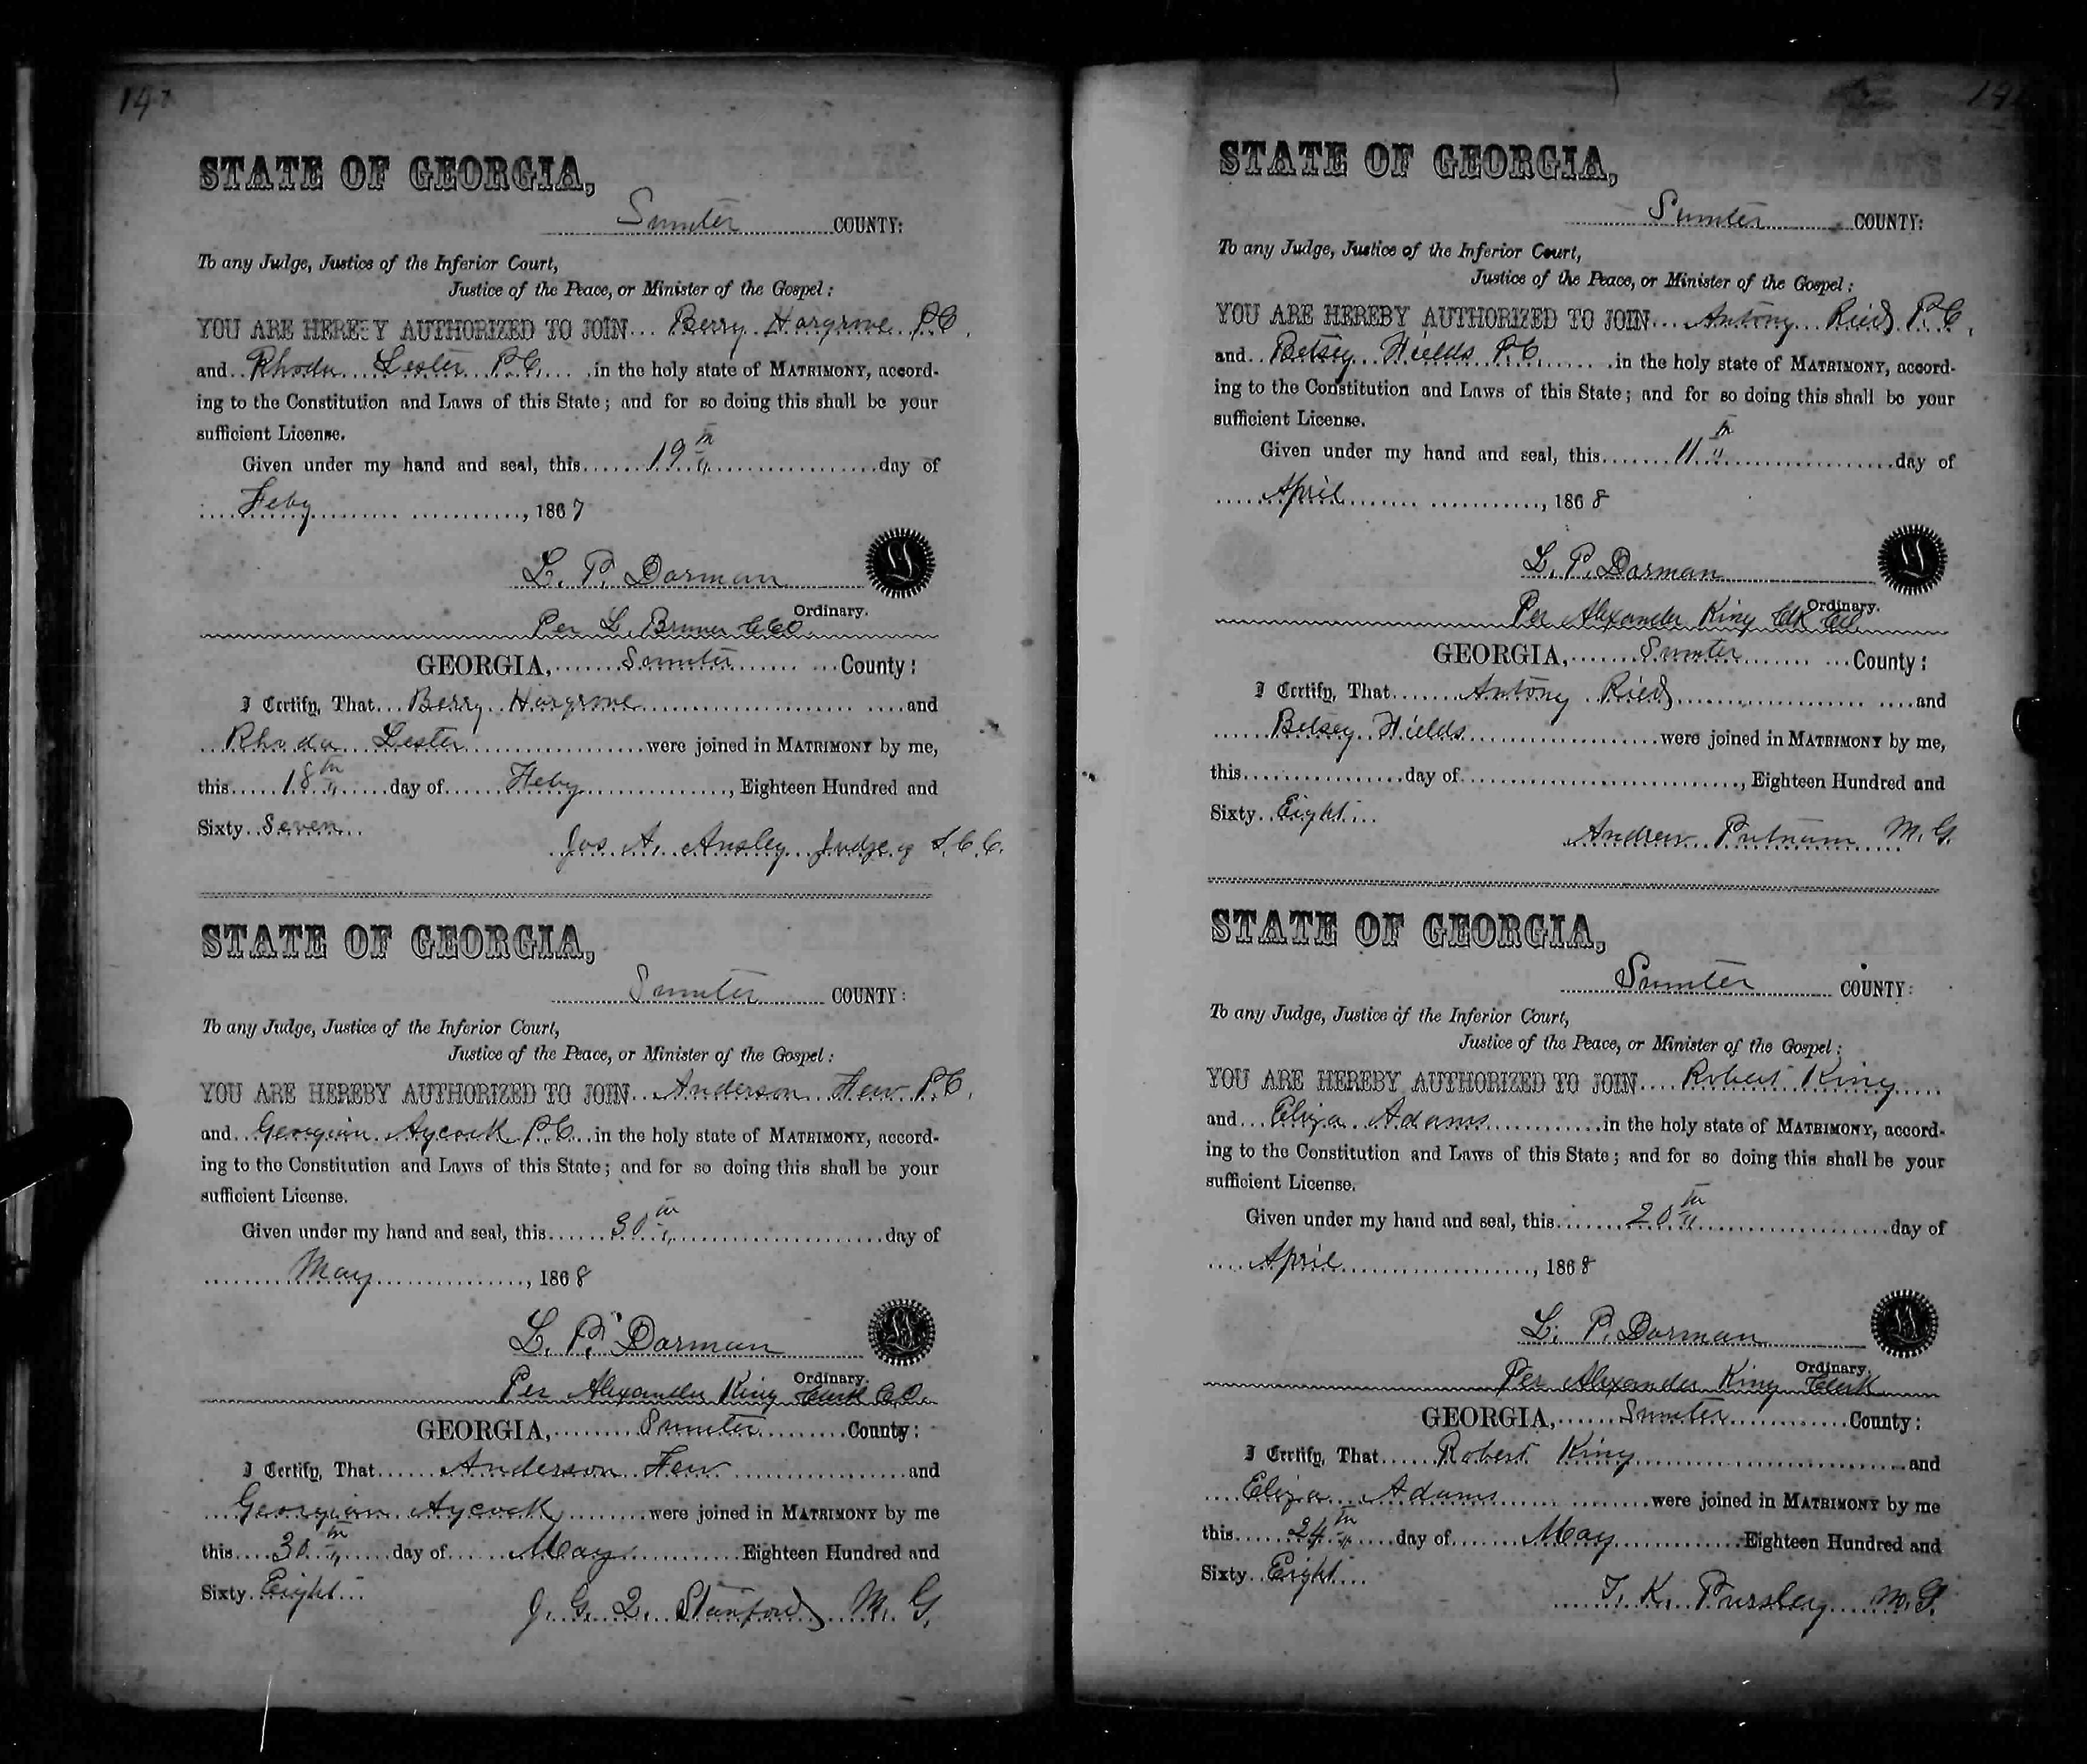 147
STATE OF GEORGIA,
Sumter COUNTY:
To any Judge, Justice of the Inferior Court,
Justice of the Peace, or Minister of the Gospel:
YOU ARE HEREBY AUTHORIZED TO JOIN Berry Hargrove P.C.
and Rhoda Lester P.C. in the holy state of MATRIMONY, accord-
ing to the Constitution and Laws of this State; and for so doing this shall be your
sufficient License.
Given under my hand and seal, this 19th day of
Feby, 1867
L. P. Dorman
Ordinary.
Per L. Bruner C.C.O.
GEORGIA, Sumter County:
I Certify, That Berry Hargrove and
Rhoda Lester were joined in MATRIMONY by me,
this 18th day of Feby, Eighteen Hundred and
Sixty Seven
Jos A. Ansley Judge of S.C.C.
STATE OF GEORGIA,
Sumter COUNTY:
To any Judge, Justice of the Inferior Court,
Justice of the Peace, or Minister of the Gospel:
YOU ARE HEREBY AUTHORIZED TO JOIN Anderson Few P.C.
and Georgian Aycock P.C. in the holy state of MATRIMONY, accord-
ing to the Constitution and Laws of this State; and for so doing this shall be your
sufficient License.
Given under my hand and seal, this 30th day of
May, 1868
L. P. Dorman
Ordinary.
Per Alexander King Clerk C.O.
GEORGIA, Sumter County:
I Certify, That Anderson Few and
Georgian Aycock were joined in MATRIMONY by me
this 30th day of May Eighteen Hundred and
Sixty Eight
J. G. Q. Stanford M. G.
STATE OF GEORGIA,
Sumter COUNTY:
To any Judge, Justice of the Inferior Court,
Justice of the Peace, or Minister of the Gospel:
YOU ARE HEREBY AUTHORIZED TO JOIN Antony Ried P.C.
and Betsey Fields P.C. in the holy state of MATRIMONY, accord-
ing to the Constitution and Laws of this State; and for so doing this shall be your
sufficient License.
Given under my hand and seal, this 11th day of
April, 1868
L. P. Dorman
Ordinary.
Per Alexander King Clk
GEORGIA, Sumter County:
I Certify, That Antony Ried and
Betsey Fields were joined in MATRIMONY by me,
this day of, Eighteen Hundred and
Sixty Eight
Andrew Putnam M. G.
STATE OF GEORGIA,
Sumter COUNTY:
To any Judge, Justice of the Inferior Court,
Justice of the Peace, or Minister of the Gospel:
YOU ARE HEREBY AUTHORIZED TO JOIN Robert King
and Eliza Adams in the holy state of MATRIMONY, accord-
ing to the Constitution and Laws of this State; and for so doing this shall be your
sufficient License.
Given under my hand and seal, this 20th day of
April, 1868
L. P. Dorman
Ordinary.
Per Alexander King Clerk
GEORGIA, Sumter County:
I Certify, That Robert King and
Eliza Adams were joined in MATRIMONY by me
this 24th day of May Eighteen Hundred and
Sixty Eight
T. K. Pursley M. G.